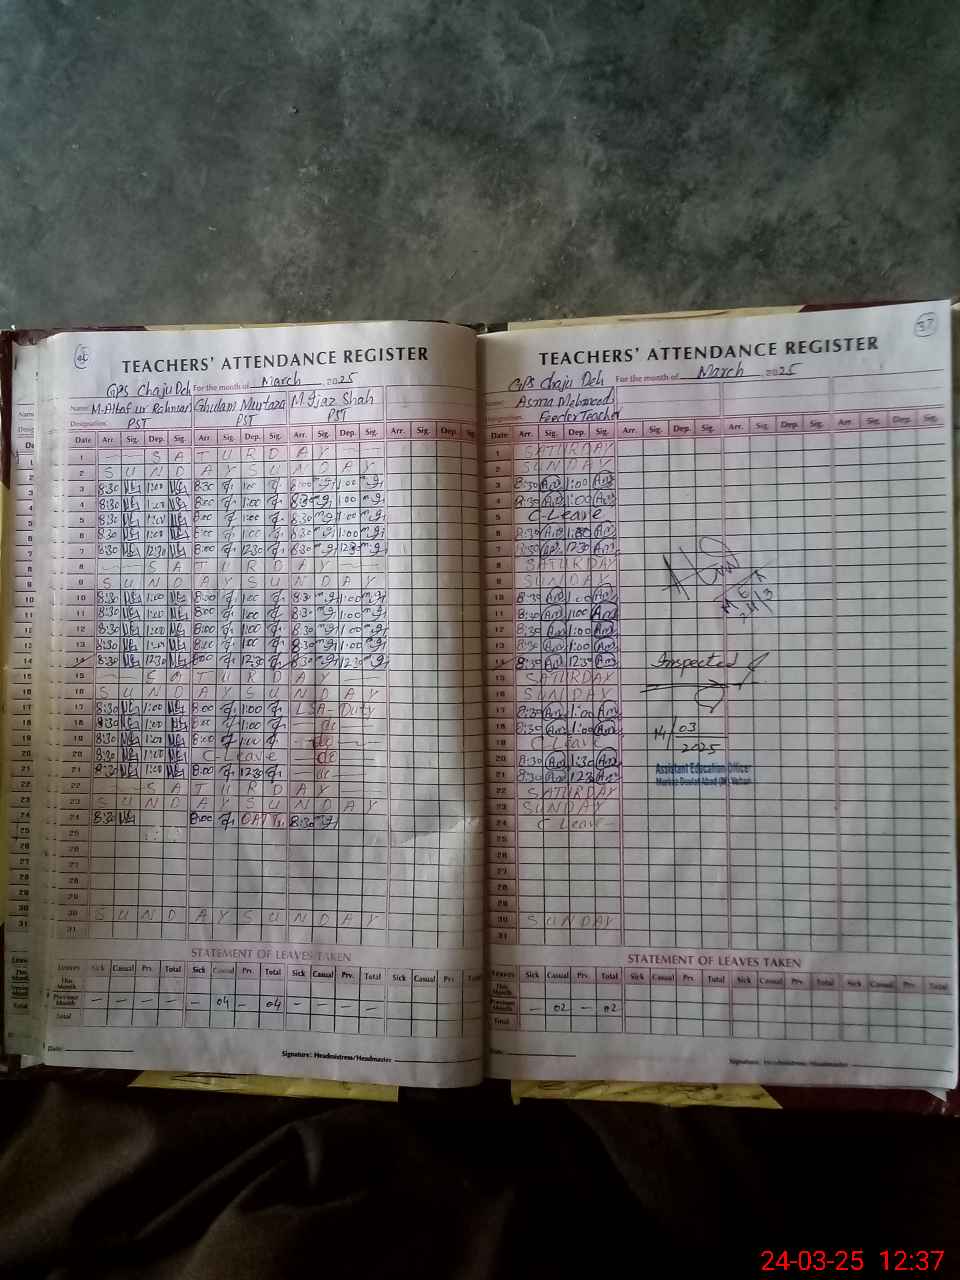 TEACHERS' ATTENDANCE REGISTER
GPS Chaju Deh For the month of March, 2025
Name: M. Altaf ur Rehman Ghulam Murtaza M. Ijaz Shah
Designation: PST PST PST
Date Arr. Sig. Dep. Sig. Arr. Sig. Dep. Sig. Arr. Sig. Dep. Sig. Arr. Sig. Dep. Sig.
1 SATURDAY
2 SUNDAY SUNDAY
3 8:30 1:00 8:30 1:00 1:00
4 8:30 1:00 8:00 1:00 8:30 1:00
5 8:30 1:00 8:00 1:00 8:30 1:00
6 8:30 1:00 8:00 1:00 8:30 1:00
7 8:30 12:30 8:00 12:30 8:30 12:30
8 SATURDAY
9 SUNDAY SUNDAY
10 8:30 1:00 8:00 1:00 8:30 1:00
11 8:30 1:00 8:00 1:00 8:30 1:00
12 8:30 1:00 8:00 1:00 8:30 1:00
13 8:30 1:00 8:00 1:00 8:30 1:00
14 8:30 12:30 8:00 12:30 8:30 12:30
15 SATURDAY
16 SUNDAY SUNDAY
17 8:30 1:00 8:00 1:00 LSA-Duty
18 8:30 1:00 8:00 1:00 do
19 8:30 1:00 8:00 1:00 do
20 8:30 1:00 C-Leave do
21 8:30 1:00 8:00 12:30 do
22 SATURDAY
23 SUNDAY SUNDAY
24 8:30 8:00 8:30
25
26
27
28
29
30 SUNDAY SUNDAY
31
STATEMENT OF LEAVES TAKEN
Leaves Sick Casual Prv. Total Sick Casual Prv. Total Sick Casual Prv. Total Sick Casual Prv. Total
This Month
Previous Month — — — — — 04 — 04 — — — —
Total
Date: Signature: Headmistress/Headmaster
37
TEACHERS' ATTENDANCE REGISTER
GPS Chaju Deh For the month of March 2025
Asma Mehmood
Feeder Teacher
Date Arr. Sig. Dep. Sig. Arr. Sig. Dep. Sig. Arr. Sig. Dep. Sig. Arr. Sig. Dep. Sig.
1 SATURDAY
2 SUNDAY
3 8:30 Am 1:00 Am
4 8:30 Am 1:00 Am
5 C-Leave
6 8:30 Am 1:00 Am
7 8:30 Am 12:30 Am
8 SATURDAY
9 SUNDAY
10 8:30 Am 1:00 Am
11 8:30 Am 1:00 Am
12 8:30 Am 1:00 Am
13 8:30 Am 1:00 Am
14 8:30 Am 12:30 Am
15 SATURDAY
16 SUNDAY
17 8:30 Am 1:00 Am
18 8:30 Am 1:00 Am
19 C Leave
20 8:30 Am 1:30 Am
21 8:30 Am 12:30 Am
22 SATURDAY
23 SUNDAY
24 C Leave
25
26
27
28
29
30 SUNDAY
31
MEA
24/3
Inspected
14/03
2025
Assistant Education Officer
Markaz
STATEMENT OF LEAVES TAKEN
Leaves Sick Casual Prv. Total Sick Casual Prv. Total Sick Casual Prv. Total Sick Casual Prv. Total
This Month
Previous Month — 02 — 02
Total
Date: Signature: Headmistress/Headmaster
24-03-25 12:37